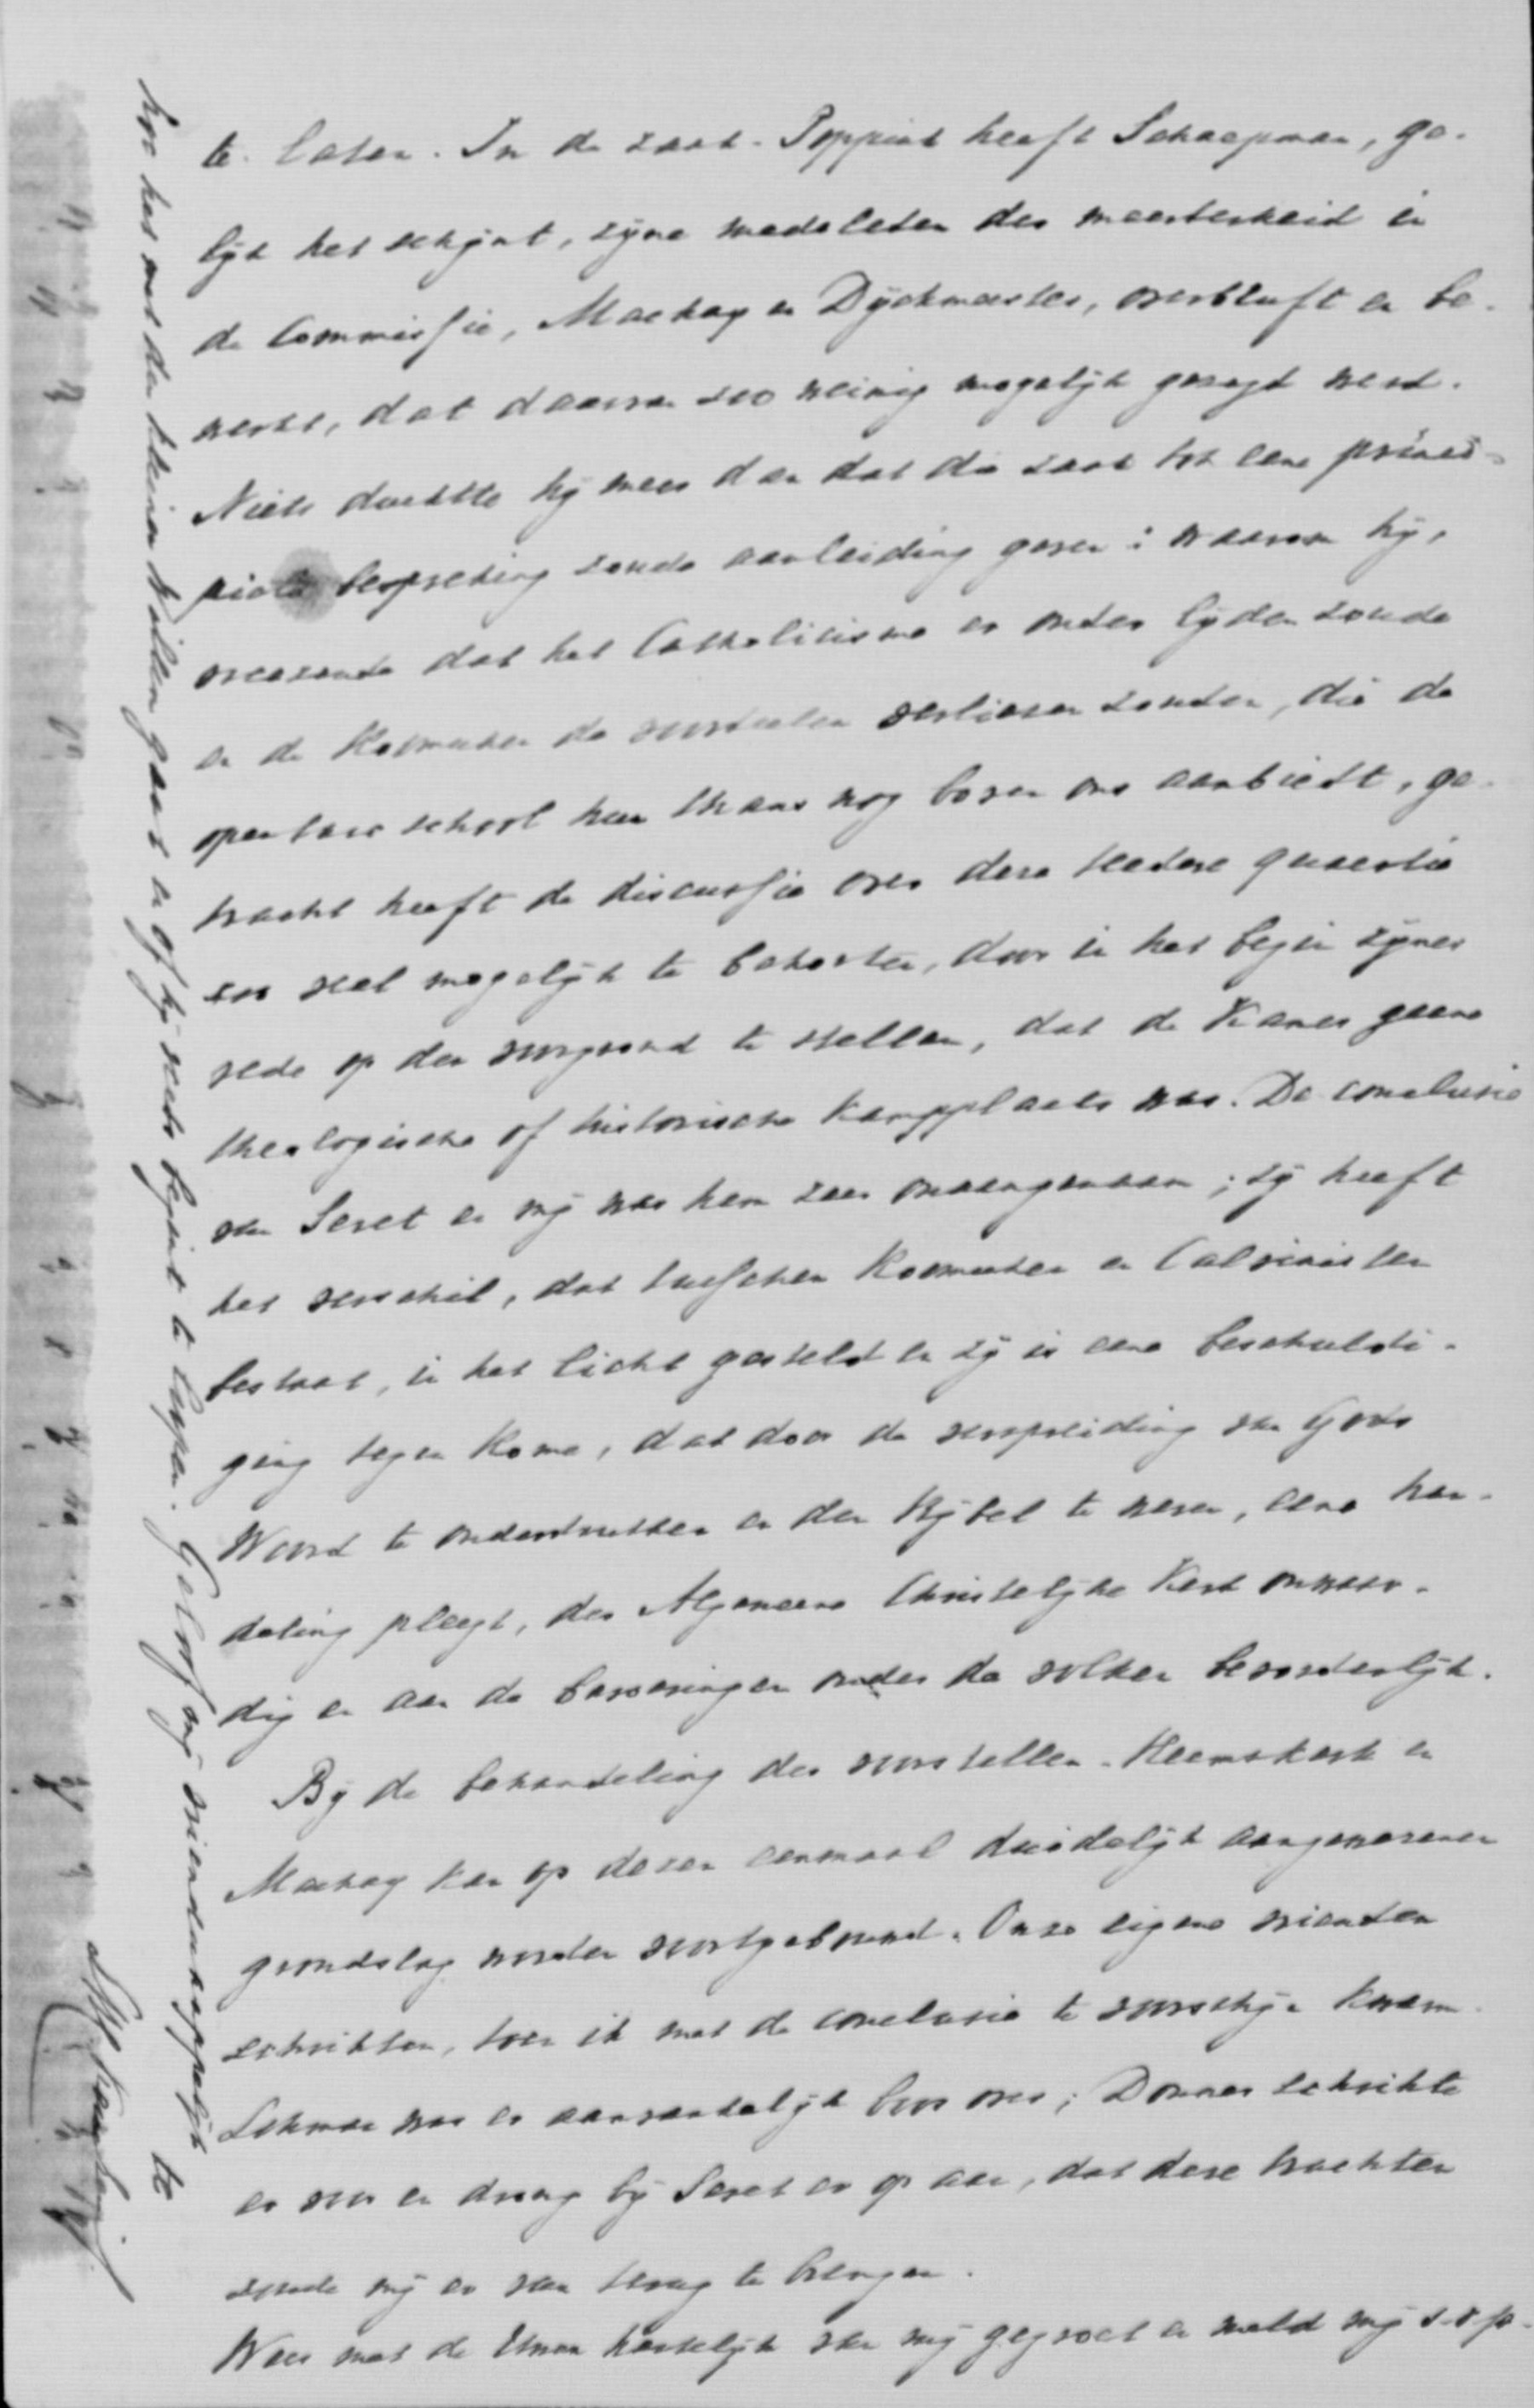 te laten. In de zaak-Poppink heeft Schaepman, ge-
lyk het schynt, zyne medeleden der meerderheid in
de Commissie, Mackay en Dyckmeester, overbluft en be-
werkt, dat daarvan zoo weinig mogelyk gezegd werd.
Niets duchtte hy meer dan dat die zaak tot eene princi-
piele bespreking zoude aanleiding geven: waarom hy,
vreezende dat het Catholicisme er onder lyden zoude
en de Roomschen de voordeelen verliezen zouden, die de
openbare school hun thans nog boven ons aanbiedt, ge-
tracht heeft de discussie over deze teedere quaestie
zoo veel mogelyk te bekorten, door in het begin zyner
rede op den voorgrond te stellen, dat de Kamer geene
theologische of historische kampplaats was. De conclusie
van Seret en my was hem zeer onaangenaam; zy heeft
het verschil, dat tusschen Roomschen en Calvinisten
bestaat, in het licht gesteld en zy is eene beschuldi-
ging tegen Rome, dat door de verspreiding van Gods
Woord te onderdrukken en den Bybel te weren, eene han-
deling pleegt, der Algemeene Christelyke Kerk onwaar-
dig en aan de beroeringen onder de volken bevorderlyk.
By de behandeling der voorstellen-Heemskerk en
Mackay kan op dezen eenmaal duidelyk aangewezenen
grondslag worden voortgebouwd. Onze eigene vrienden
schrikten, toen ik met de conclusie te voorschyn kwam.
Lohman was er aanvankelyk boos over; Donner schrikte
er voor en drong by Seret er op aan, dat deze trachten
zoude my er van terug te brengen.
Wees met de Uwen hartelyk van my gegroet en meld my s.v.p.
hoe het met den kleinen Willem gaat en of hy reeds begint te loopen. Geloof my vriendschappelyk
te